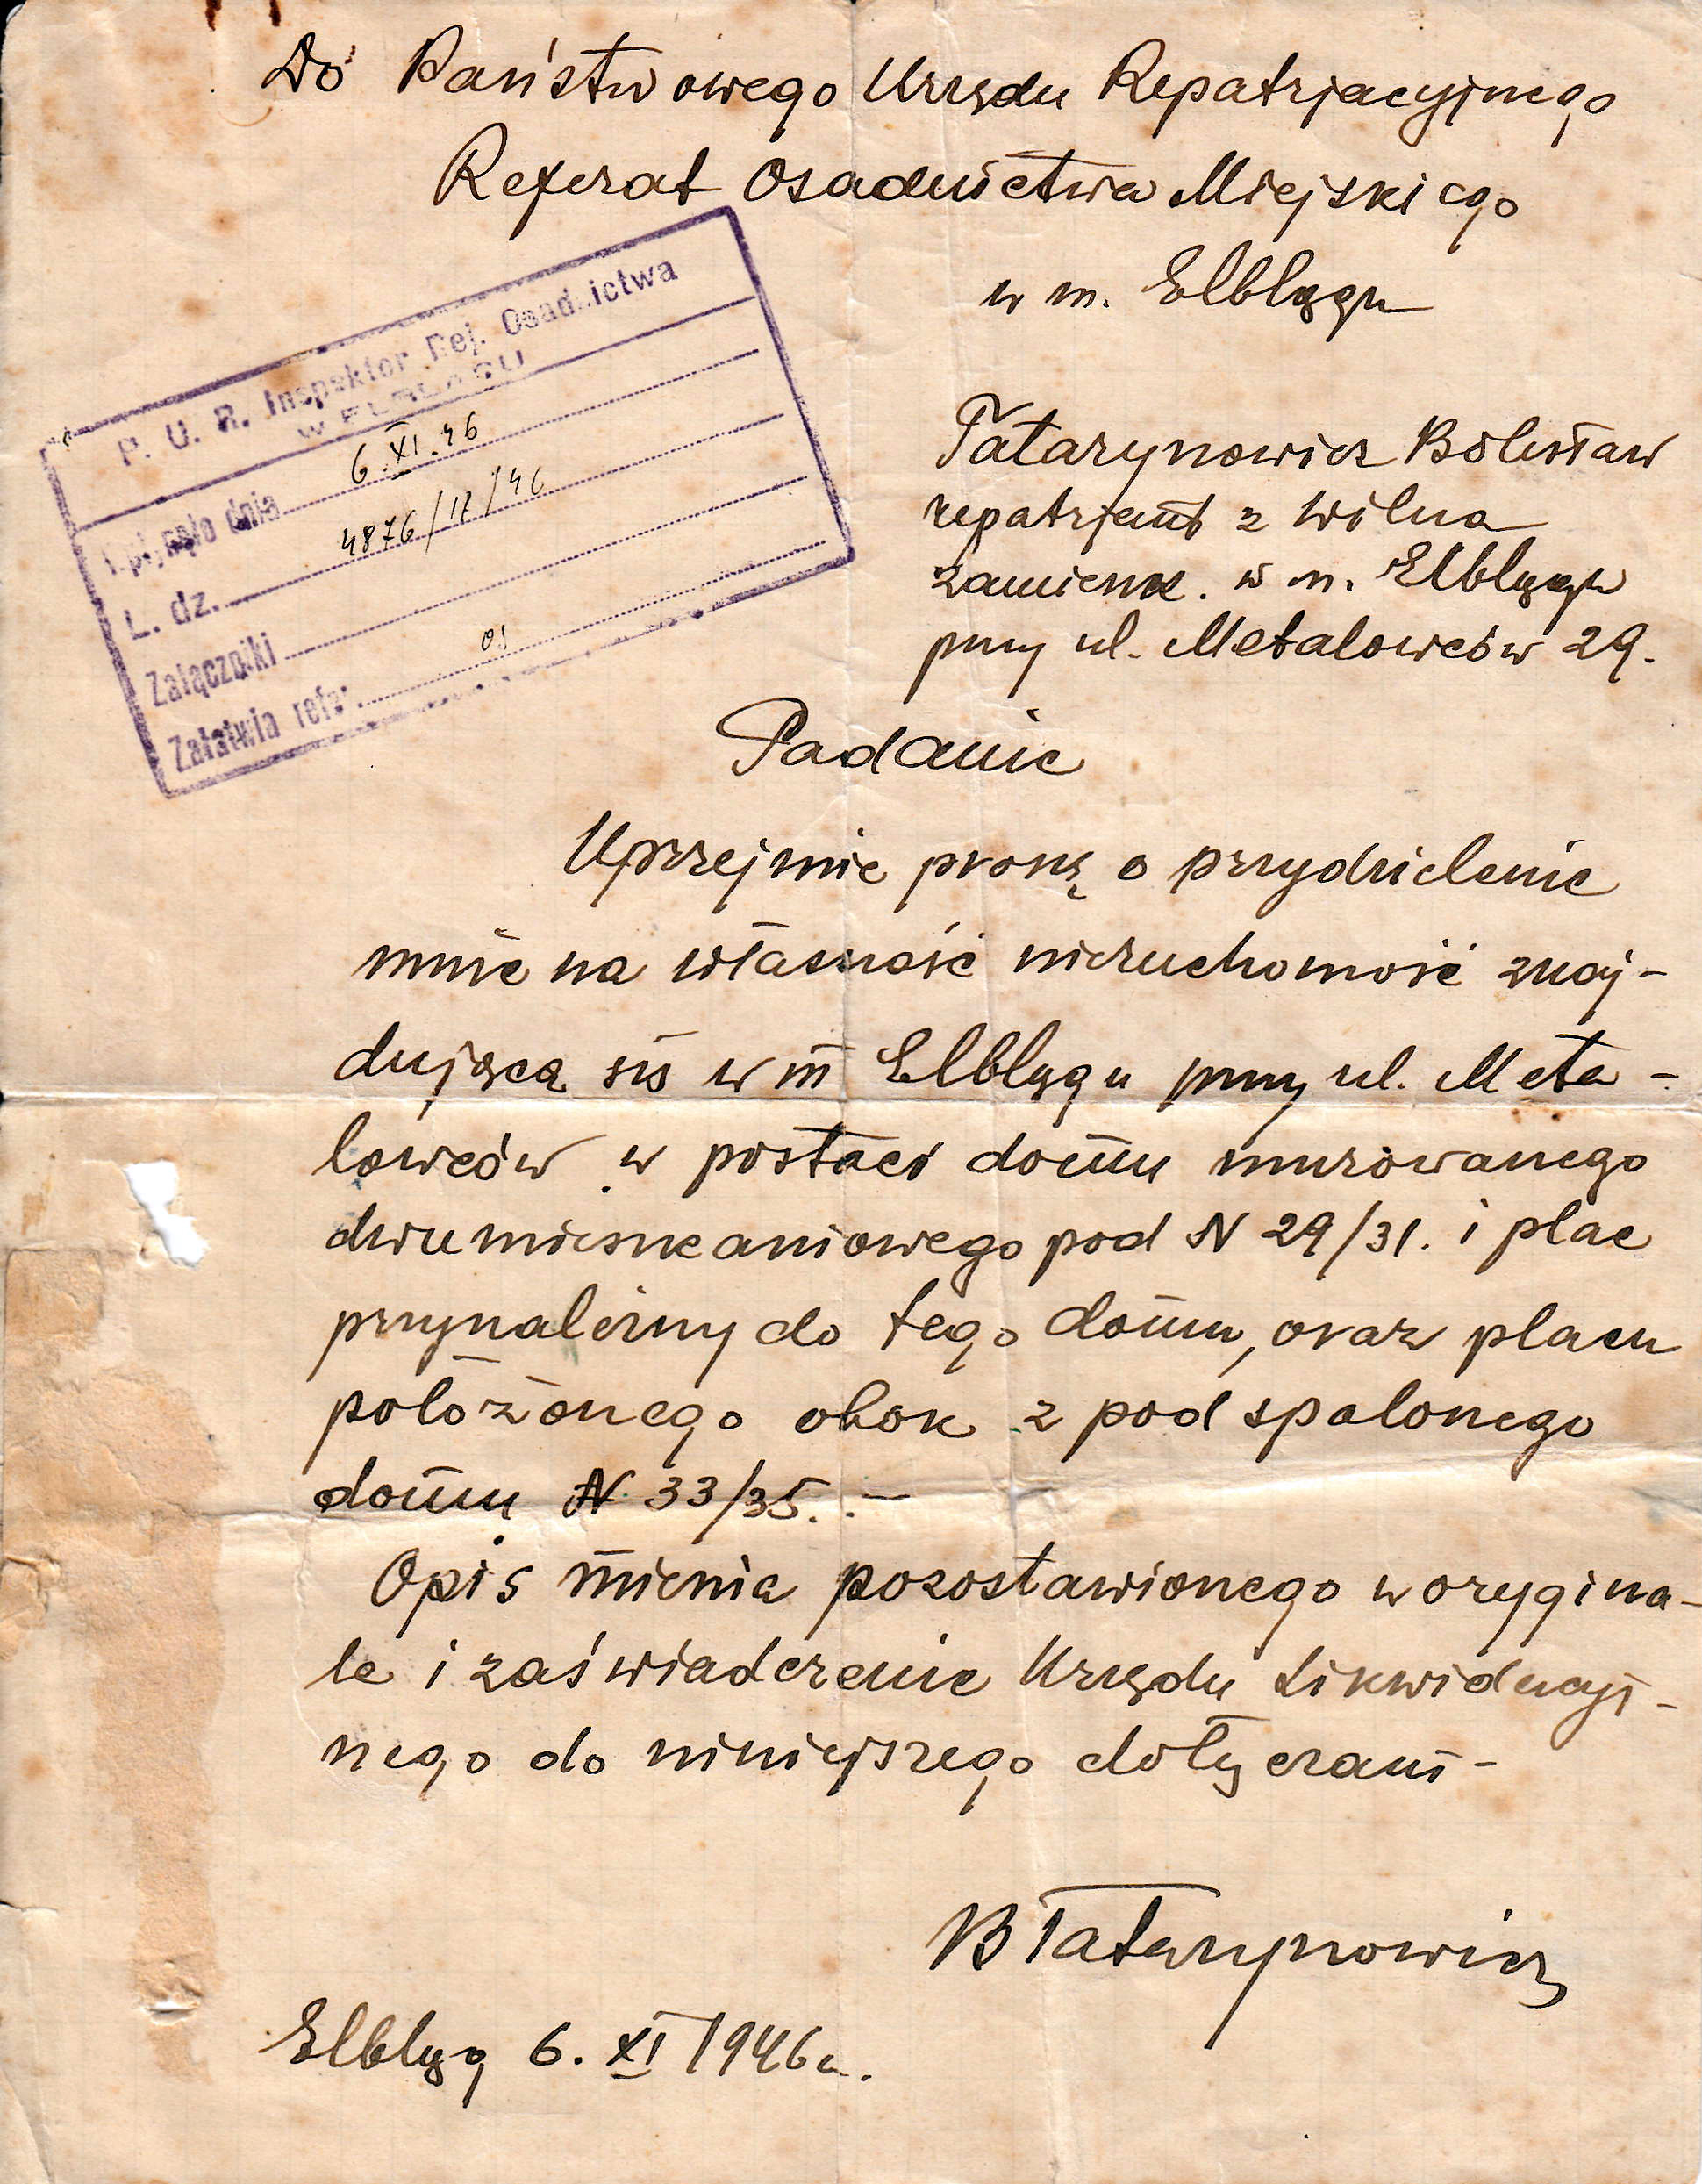 Do Państwowego Urzędu Repatrjacyjnego
Referat Osadnictwa Miejskiego
w m. Elblągu
P. U. R. Inspektor Rej. Osadnictwa
W ELBLĄGU
Wpłynęło dnia 6.XI.46
L. dz. 4876/17/46
Załączniki
Załatwia refer. os
Tatarynowicz Bolesław
repatrjant z Wilna
zamieszk. w m. Elblągu
przy ul. Metalowców 29.
Podanie
Uprzejmie proszę o przydzielenie
mnie na własność nieruchomość znaj-
dującą się w m Elblągu przy ul. Meta-
lowców w postaci domu murowanego
dwumieszkaniowego pod N 29/31. i plac
przynależny do tego domu, oraz placu
położonego obok z pod spalonego
domu N 33/35. -
Opis mienia pozostawionego w orygina-
le i zaświadczenie Urzędu Likwidacyj-
nego do niniejszego dołączam -
BTatarynowicz
Elbląg 6. XI 1946 r.